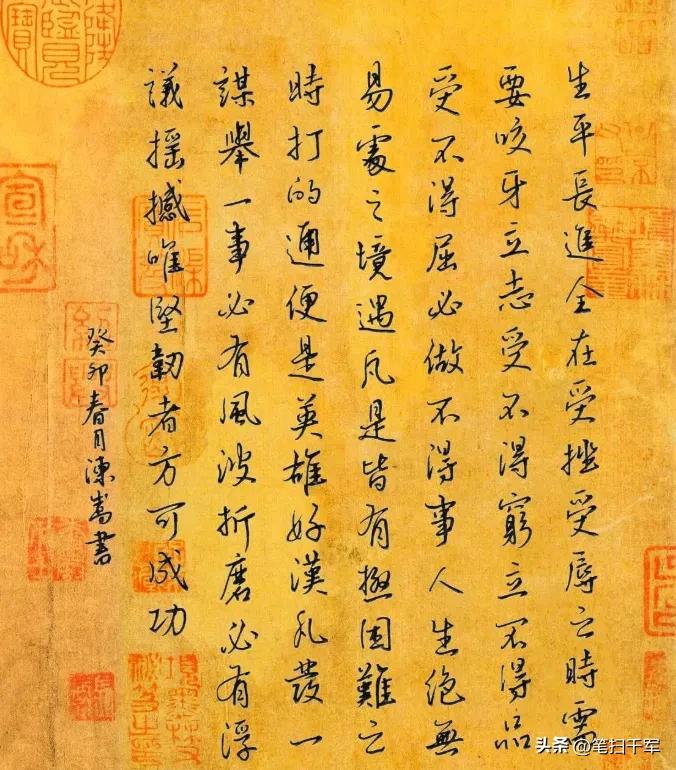 生平長進全在受挫受辱之時需
要咬牙立志受不得窮立不得品
受不得屈必做不得事人生絕無
易處之境遇凡是皆有極困難之
時打的通便是英雄好漢凡發一
謀舉一事必有風波折磨必有浮
議搖撼唯堅韌者方可成功
癸卯春月陳嵩書
头条 @笔扫千军